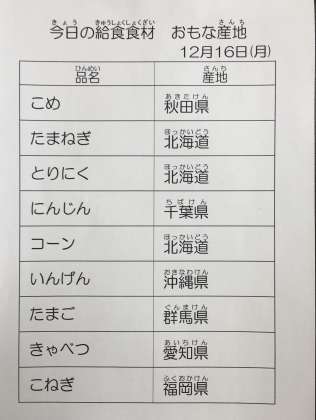 今日の給食食材 おもな産地
12月16日(月)
品名 産地
こめ 秋田県
たまねぎ 北海道
とりにく 北海道
にんじん 千葉県
コーン 北海道
いんげん 沖縄県
たまご 群馬県
きゃべつ 愛知県
こねぎ 福岡県